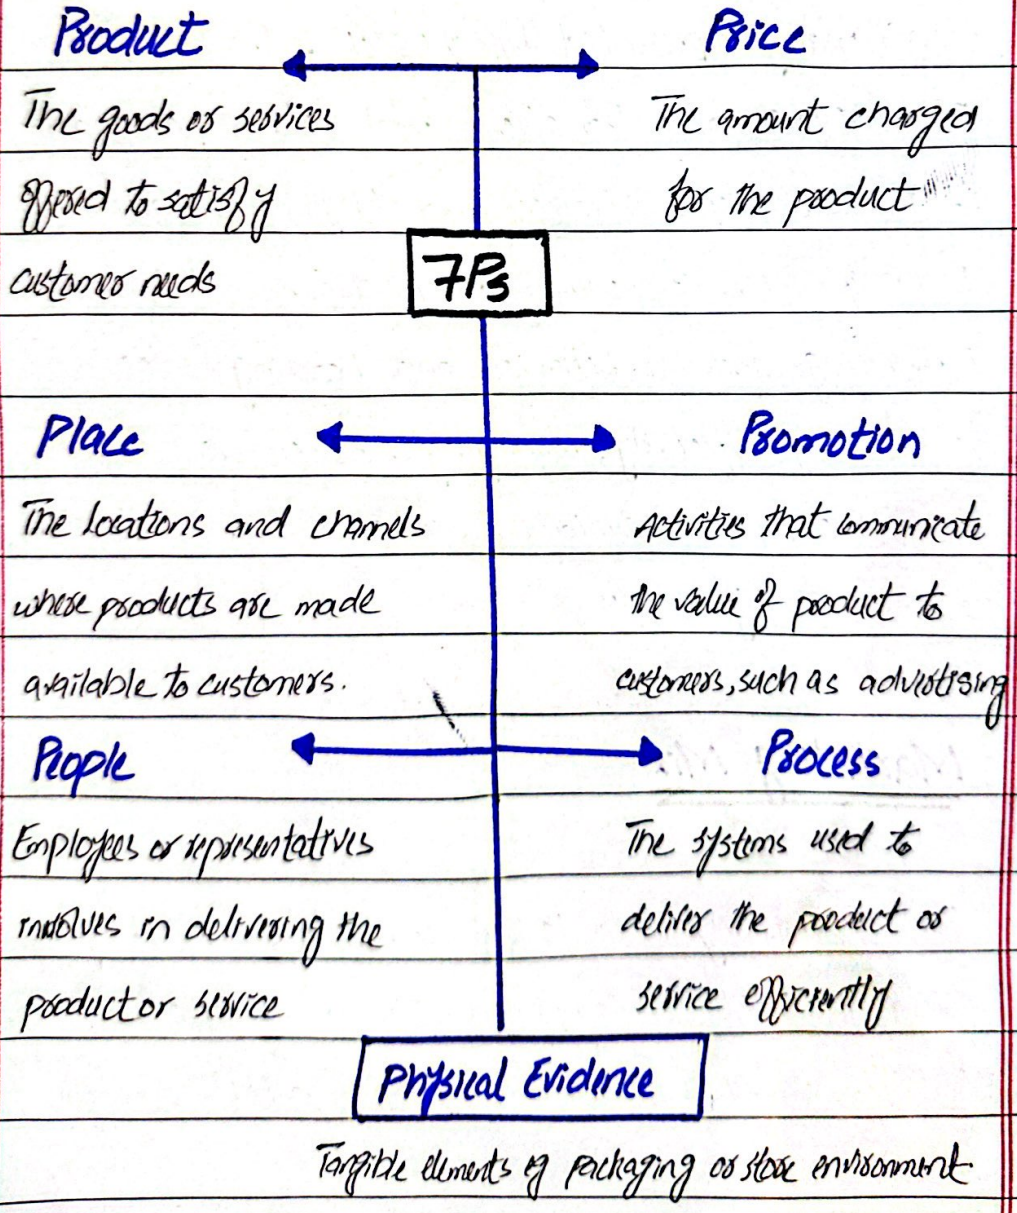 Product
Price
The goods or services
offered to satisfy
customer needs
The amount charged
for the product
7Ps
Place
Promotion
The locations and channels
where products are made
available to customers.
Activities that communicate
the value of product to
customers, such as advertising
People
Process
Employees or representatives
involves in delivering the
product or service
The systems used to
deliver the product or
service efficiently
Physical Evidence
Tangible elements eg packaging or store environment